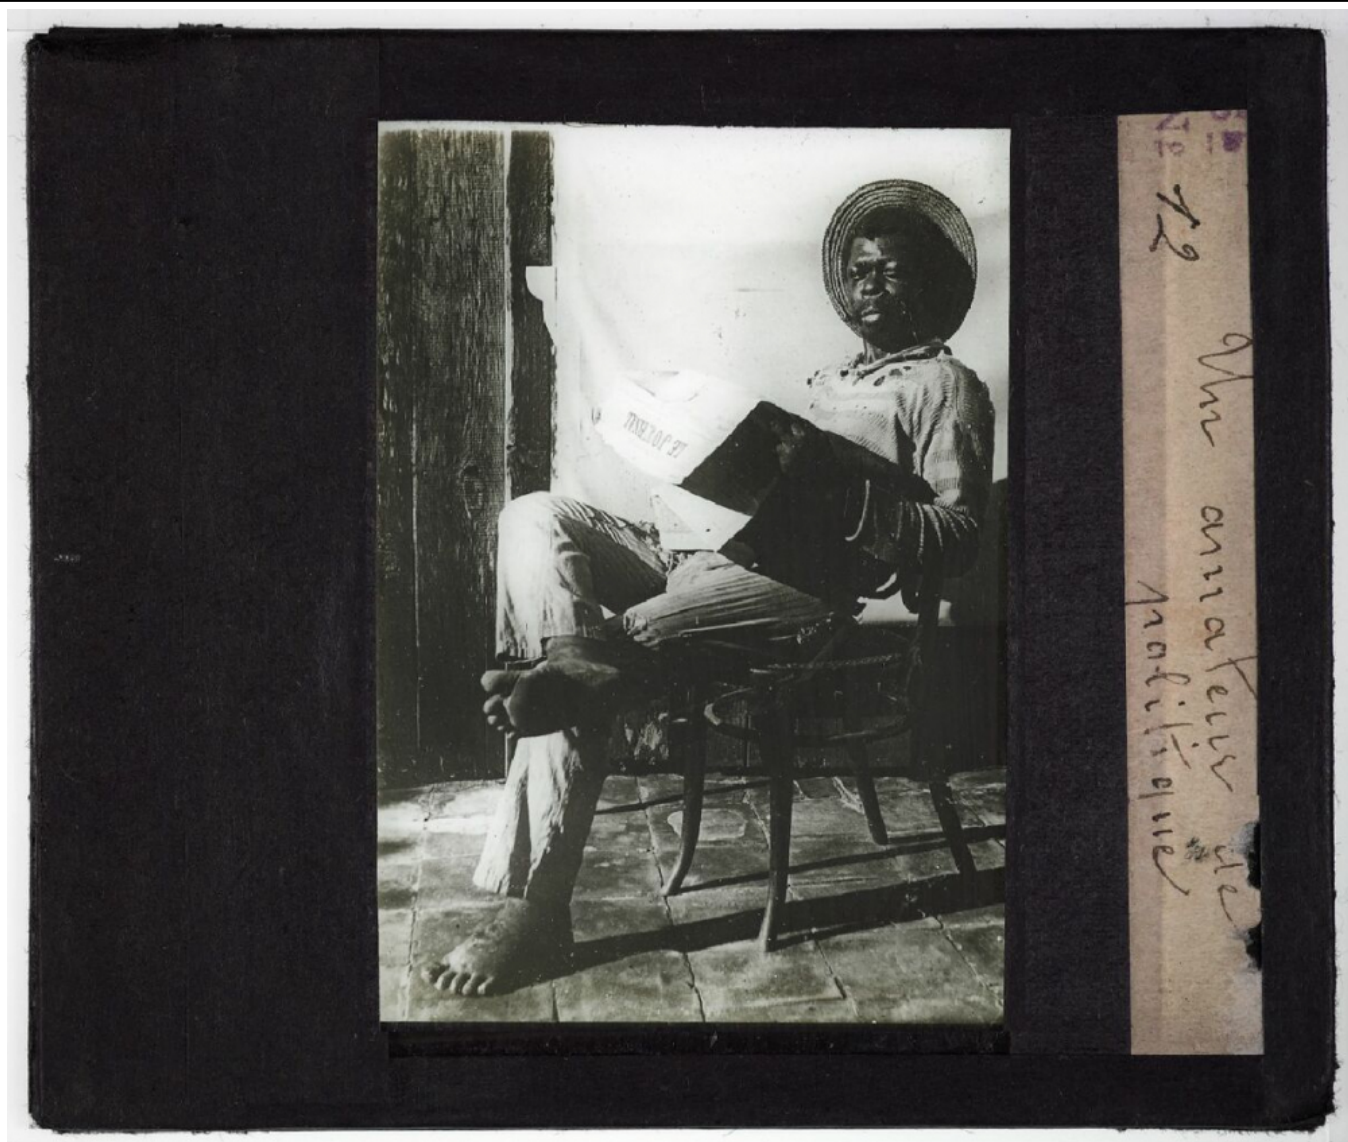 N° 12
Un amateur de
politique
LE JOURNAL